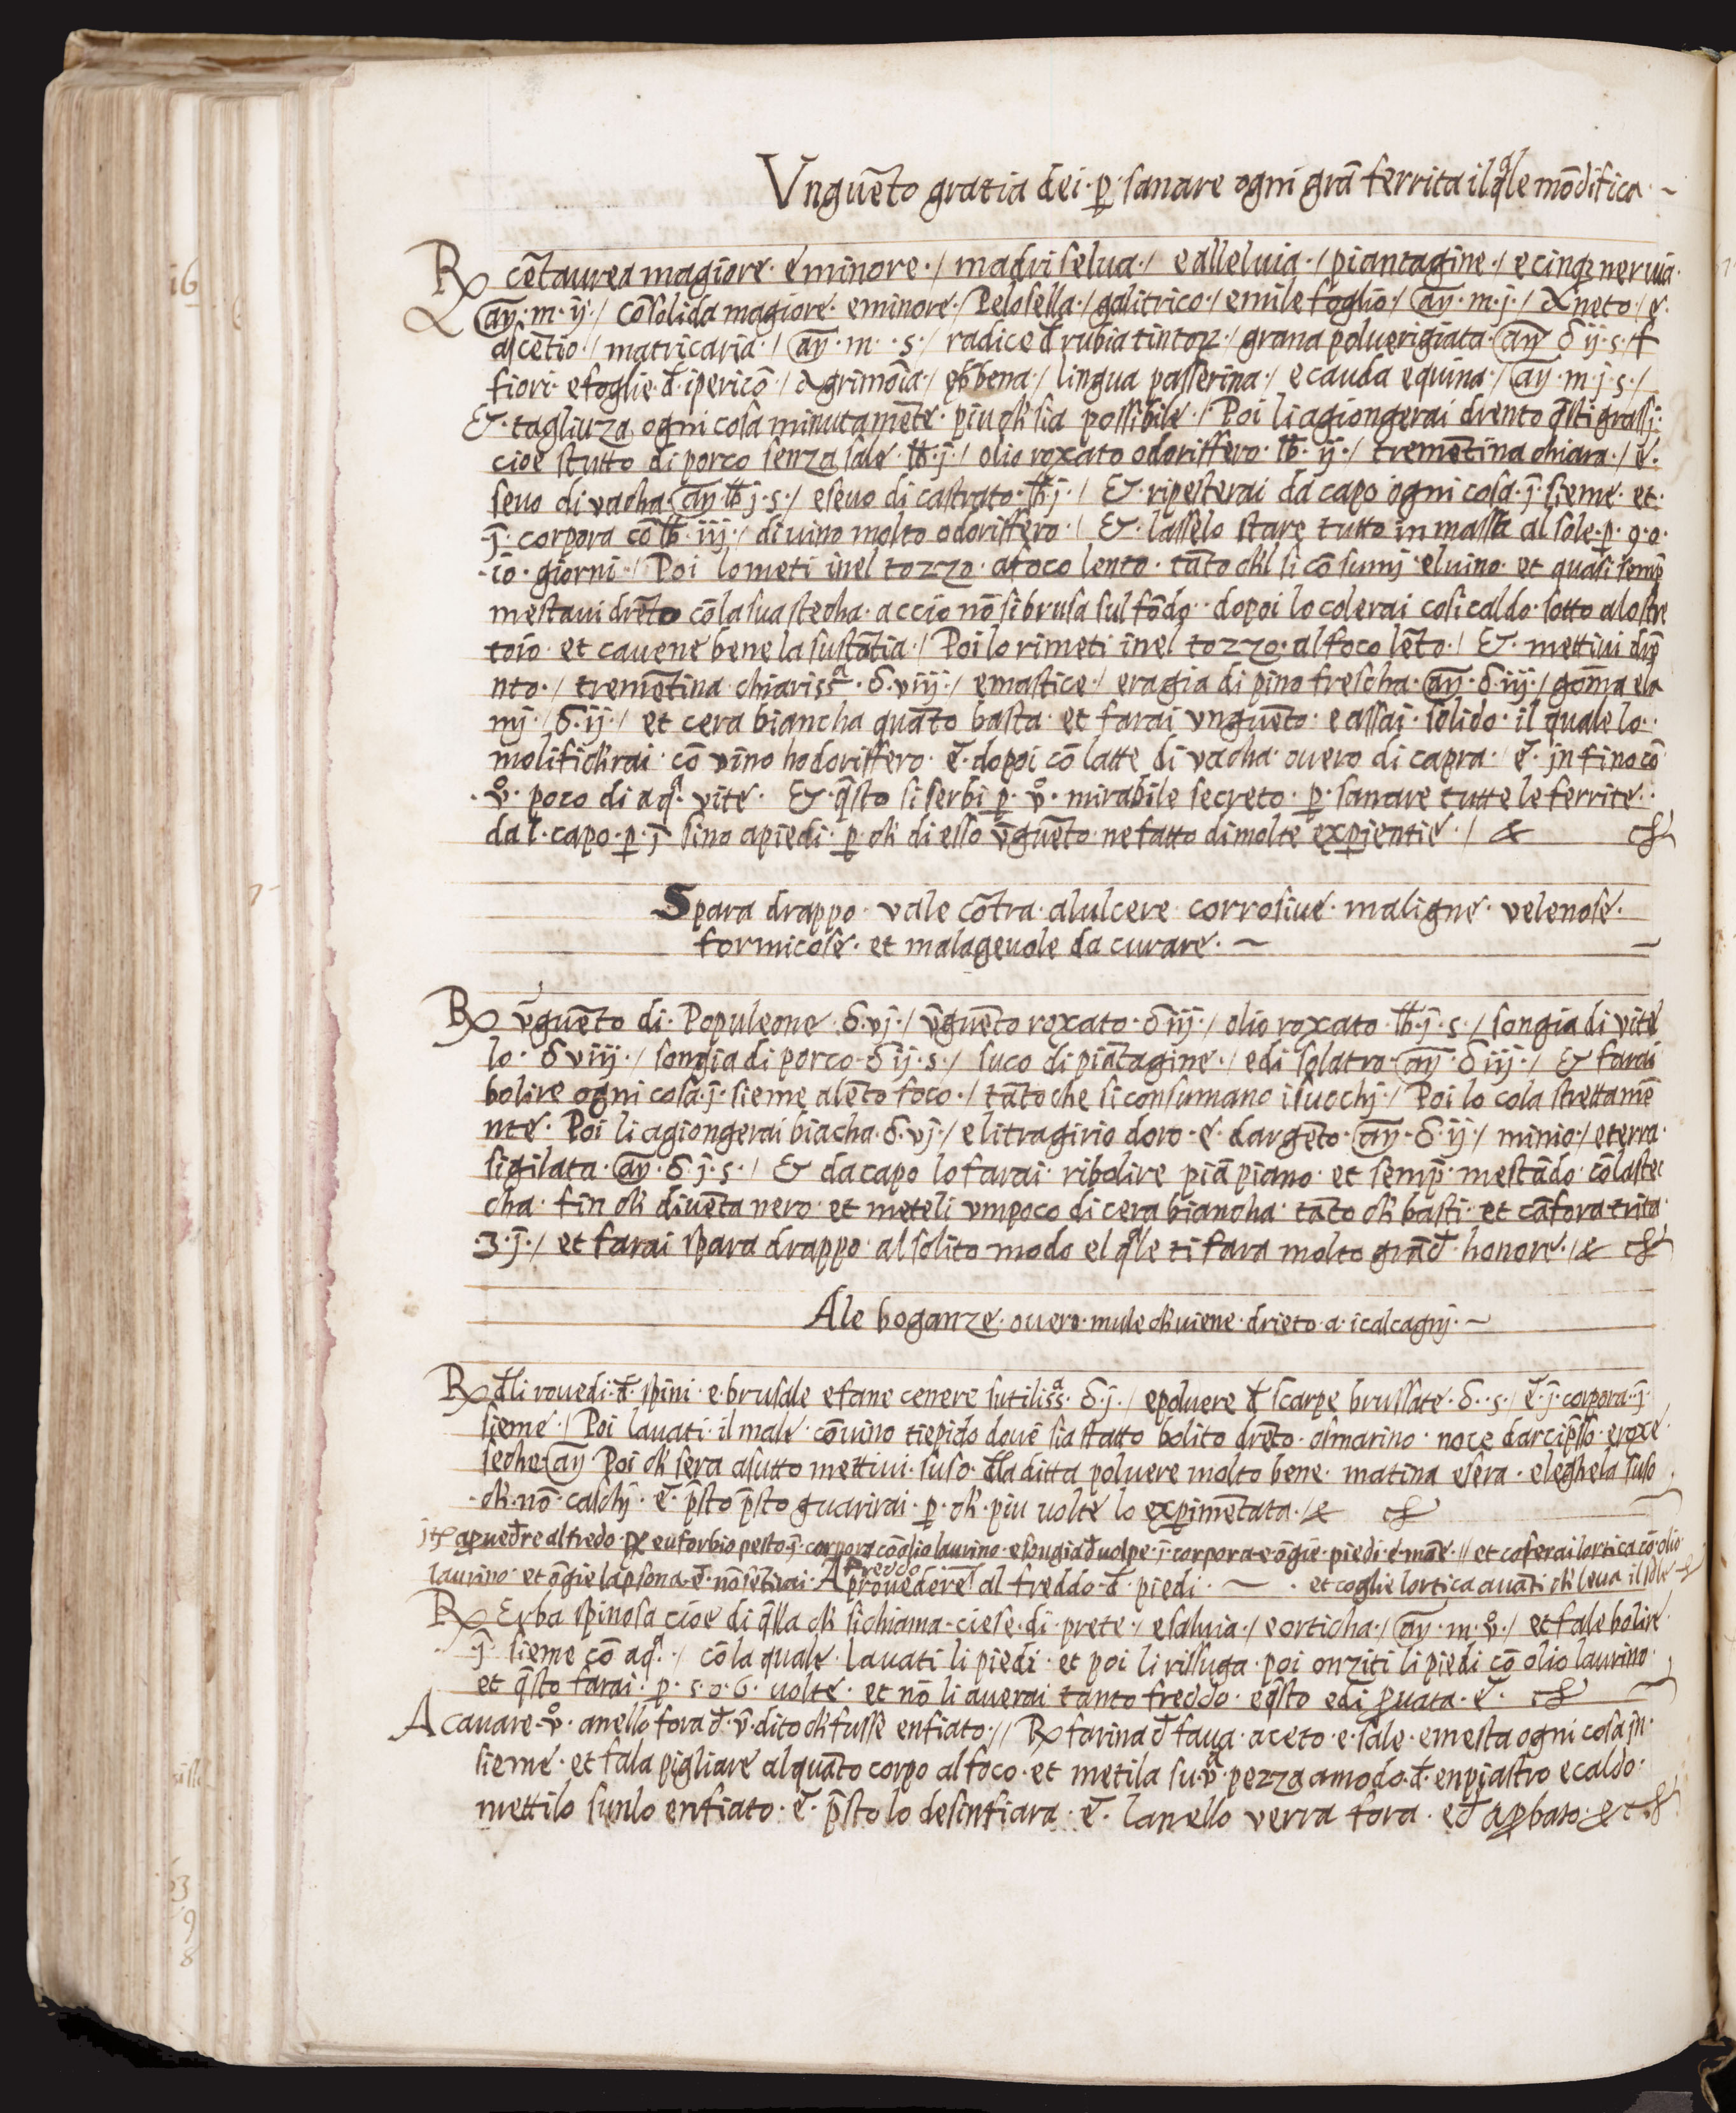 Vnguẽto gratia dei · p̱ · sanare ogni grã ferrita il q̃le mõdifica ·~
R̷ cẽtaurea magiore · e minore · / madriselua · / e alleluia · / piantagine · / e cinqȝ neruia ·
añ · m · ij · / cõsolida magiore · e minore · / Pelosella · / galitrico · / e mile foglio · / añ · m · j · / Aneto · / e ·
ascẽtio · / matricaria · / añ · m · · s · / radice đ rubia tintoꝝ · / grana poluerigiata · añ ẟ ij · s · /
fiori · e foglie · đ · ipericõ · / Agrimõia · / / lingua passerina · / e cauda equina · / añ · m · j · s · /
& · tagliuza ogni cosa minutamẽte · piu ch̃ sia possibile · / Poi li agiongerai drento q̃sti grassi :
cioe stutto di porco senza sale · ℔ · j · / olio roxato odoriffero · ℔ · ij · / tremẽtina chiara · / e ·
seuo di vacha · añ ℔ j · s · / e seuo di castrato · ℔ j · / & · ripesterai da capo ogni cosa · j̃ · sieme · et ·
j̃ · corpora cõ ℔ · iij · / di uino molto odoriffero · / & · lasselo stare tutto in massa al sole · p̱ · 9 · o ·
· io · giorni · / Poi lo meti inel tozzo · a foco lento · tãto ch̃l si cõsumj · el uino · et quasi semp̱
mestaui drẽto cõ la sua stecha · accio nõ si brusa sul fõdo · · dopoi lo colerai cosi caldo · sotto a lo stre
toio · et cauene bene la sustãtia · / Poi lo rimeti inel tozzo · al foco lẽto · / & · mettiui drẽ
nto · / tremẽtina chiarissᵃ · ẟ · viij · / e mastice · / e ragia di pino frescha · añ · ẟ · iij · / gom̃a ele
mj · / ẟ · ij · / et cera biancha quãto basta · et farai vnguẽto · e assai · solido · il quale lo · ·
molifich̃rai · cõ vino hodoriffero · ẽ · dopoi cõ latte di vacha · ouero di capra · ẽ · jn fino cõ
· v̊ · poco di aq̃ · vite · & · q̃sto si serbi p̱ · v̊ · mirabile secreto · p̱ · sanare tutte le ferrite · ·
dal · capo · p̱ · j̃ · sino a piedi · p̱ · ch̃ di esso ṽguẽto · ne fatto di molte exp̱ientie · / &
Spara drappo · vale cõtra · alulcere corrosiue · maligne · velenose ·
formicose · et malageuole da curare · ~
R̷ ṽguẽto di · Populeone · ẟ · vj · / ṽguẽto roxato · ẟ iij · / olio roxato · ℔ · j · s · / songia di vite
lo · ẟ viij · / songia di porco · ẟ ij · s · / suco di piãtagine · / e di solatro · añ · ẟ iij · / & farai
bolire ogni cosa · j̃ · sieme a lẽto foco · / tãto che si consumano i succhj · / Poi lo cola strettamẽ
nte · Poi li agiongerai biacha · ẟ · vj · / e litragirio doro · e · dargẽto · añ · ẟ · ij · / minio · / e terra ·
sigilata · añ · ẟ · j · s · / & da capo lo farai · ribolire piã piano · et semp̱ · mestãdo · cõ la ste
cha · fin ch̃ diuẽta nero · et meteli vmpoco di cera biancha · tãto ch̃ basti · et cãfora trita ·
· ʒ · j · / et farai spara drappo · al solito modo el q̃le ti fara molto grãđ · honore · / &
Ale boganze · ouero · mule ch̃ uiene · drieto · a · i calcagnj · ~
R̷ đli rouedi · đ · spini · e · brusale e fane cenere sutilissᵃ · ẟ · j · / e poluere đ scarpe brussate · ẟ · · s · / ẽ · j̃ · corpora · j̃ ·
sieme · / Poi lauati · il male · cõ uino tiepido doue sia statto bolito drẽto · osmarino · noce darcip̃sso · e roxe ·
seche · añ Poi ch̃ sera asutto mettiui · suso · đla ditta poluere molto bene · matina e sera · e leghela suso
· ch̃ · nõ · caschj · ẽ · p̃sto p̃sto guarirai · p̱ · ch̃ · piu uolte lo exp̱imẽtata · / &
a puedre al fredo · R̷ euforbio pesto · j̃ · corpora cõ olio laurino · e sougia đ uolpe · j̃ · corpora · e õgie · piedi · e mãe · // et coserai lortica cõ · olio
laurino · et õgie la p̱sona · ẽ · nõ sẽtirai · freddo A prouedere al freddo · đ · piedi · ~ · et coglie lortica auãti ch̃ leua il sole
R̷ Erba spinosa cioe di q̃lla ch̃ si chiama · ciese · di · prete · / e saluia · / e orticha · / añ · m · v̊ · / et fale bolire
j̃ · sieme cõ aq̃ · / cõ la quale · lauati li piedi · et poi li rissuga · poi onziti li piedi cõ olio laurino ·
et q̃sto farai · p̱ · 5 · o · 6 · uolte · et nõ li auerai tanto freddo · e q̃sto e di p̱uata · ẽ ·
A cauare · v̊ · anello fora đ · ṽ · dito ch̃ fusse enfiato · // R̷ farina đ faua · aceto · e · sale · e mesta ogni cosa jn ·
sieme · et fala pigliare alquãto corpo al foco · et metila su · vᵃ · pezza a modo · đ · enpiastro e caldo ·
mettilo sun lo enfiato · ẽ · p̃sto lo desinfiara · ẽ · lanello verra fora · ed a p̱bato ·